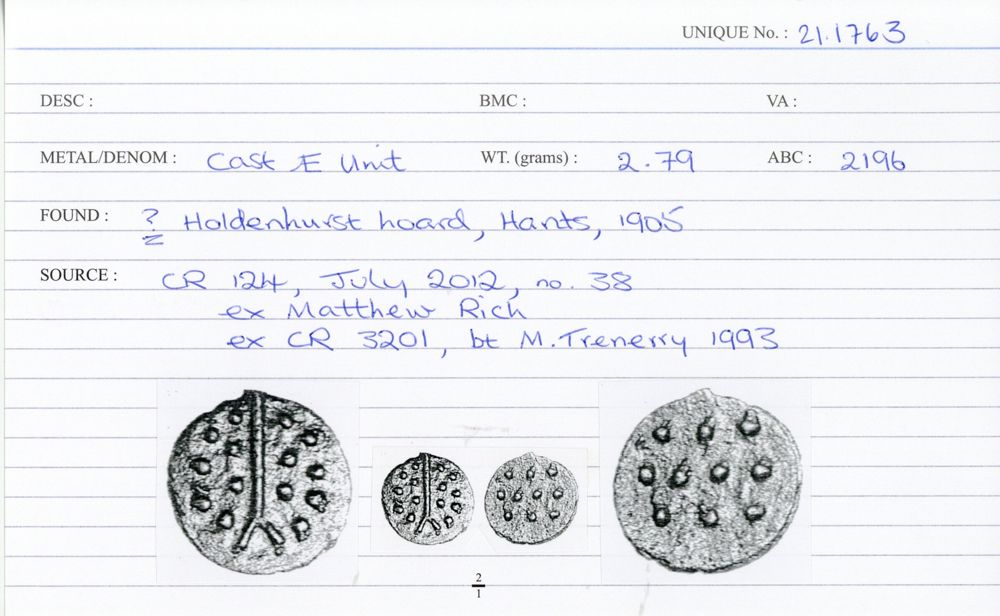 UNIQUE No. : 21.1763
DESC : BMC : VA :
METAL/DENOM : Cast Æ Unit WT. (grams) : 2.79 ABC : 2196
FOUND : ? Holdenhurst hoard, Hants, 1905
SOURCE : CR 124, July 2012, no. 38
ex Matthew Rich
ex CR 3201, bt M. Trenerry 1993
2
1